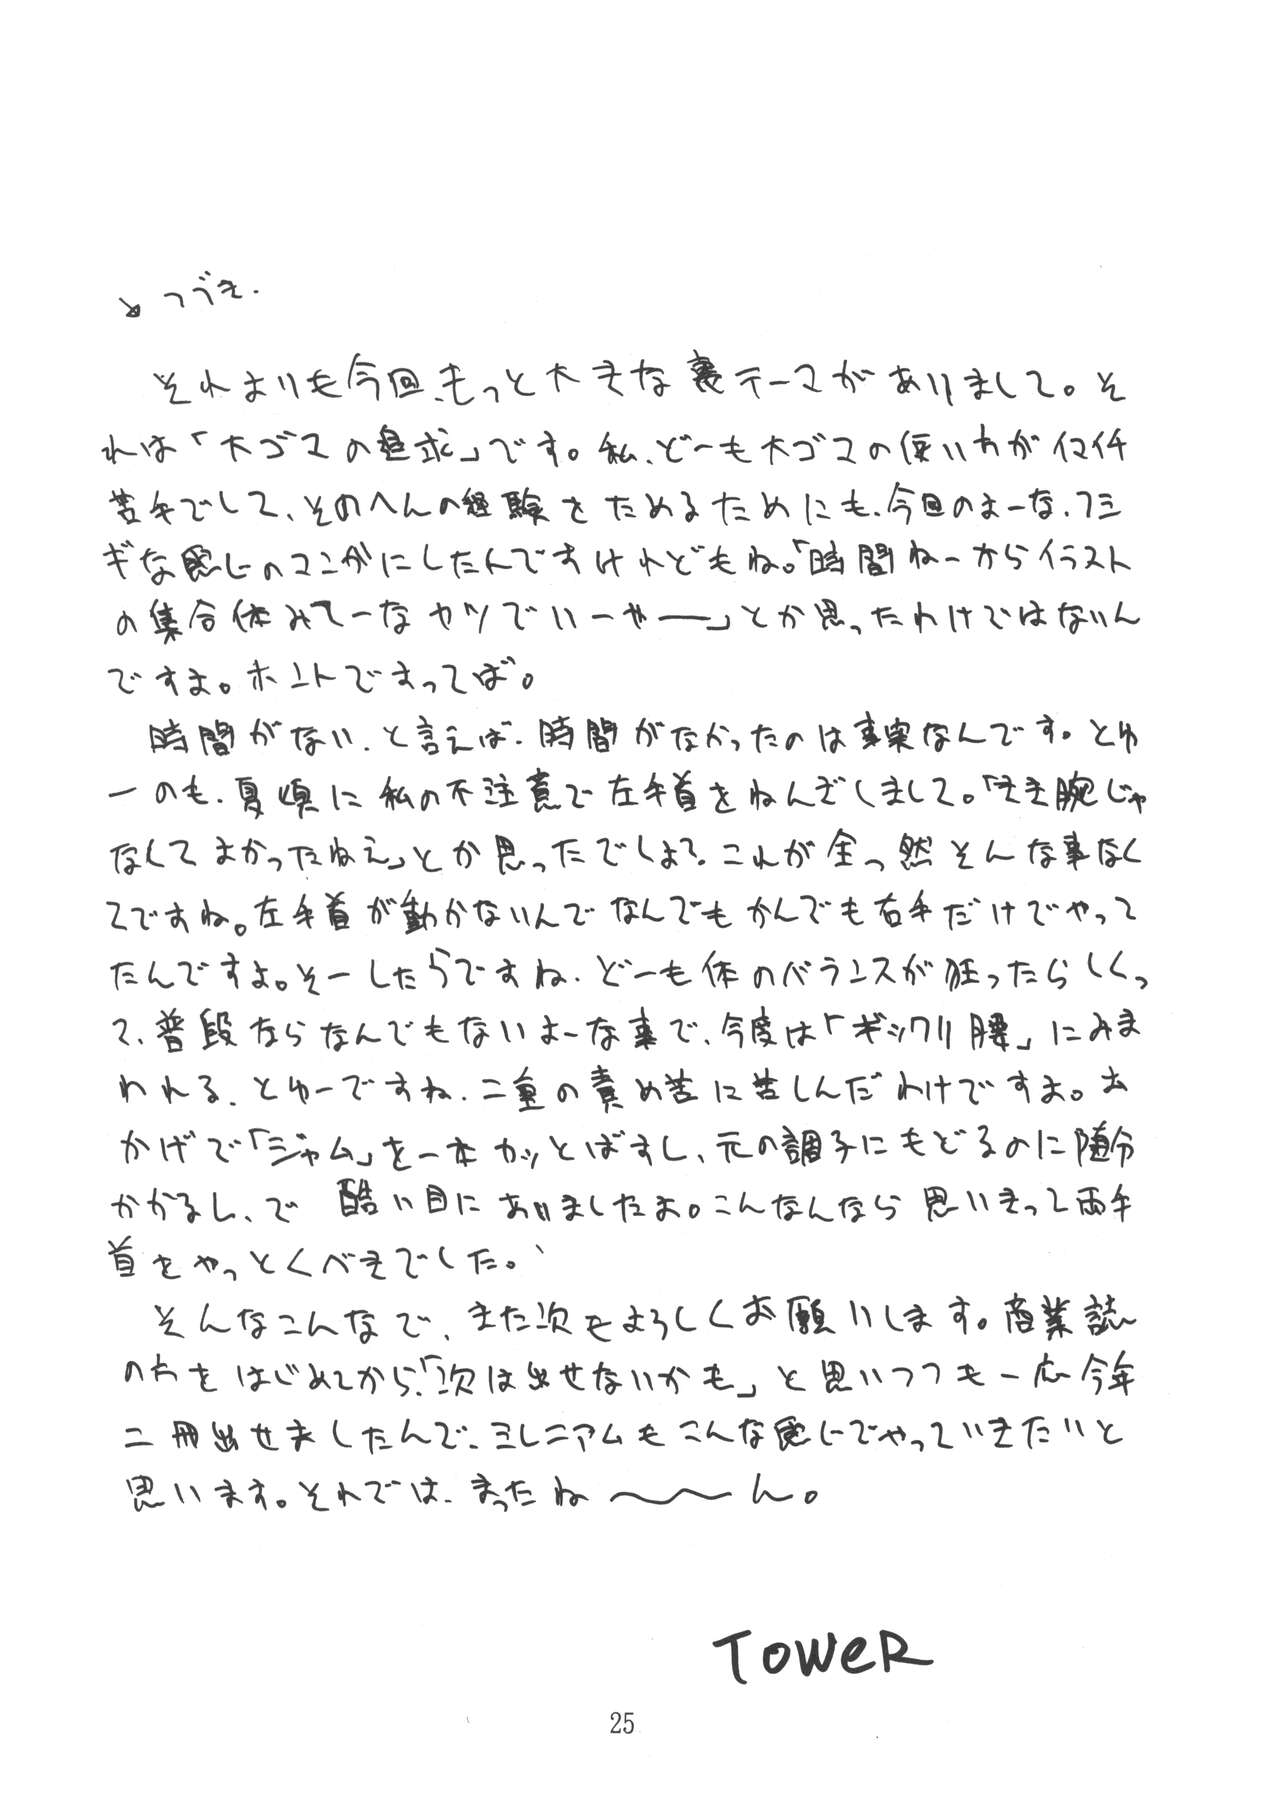 ↘ つづき.
それよりも今回、もっと大きな裏テーマがありまして。そ
れは「大ゴマの追求」です。私、どーも大ゴマの使い方がイマイチ
苦手でして、そのへんの経験をためるためにも、今回のよーな、フシ
ギな感じのマンガにしたんですけれどもね。「時間ねーからイラスト
の集合体みてーなヤツでいーやー」とか思ったわけではないん
ですよ。ホントですってば。
時間がない、と言えば、時間がなかったのは事実なんです。とゆ
ーのも、夏頃に私の不注意で左手首をねんざしまして。「きき腕じゃ
なくてよかったねえ」とか思ったでしょ?これが全っ然そんな事なく
てですね。左手首が動かないんでなんでもかんでも右手だけでやって
たんですよ。そーしたらですね、どーも体のバランスが狂ったらしくっ
て、普段ならなんでもないよーな事で、今度は「ギックリ腰」にみま
われる、とゆーですね、二重の責め苦に苦しんだわけですよ。お
かげで「ジャム」を一本カッとばすし、元の調子にもどるのに随分
かかるし、で 酷い目にあいましたよ。こんなんなら思いきって両手
首をやっとくべきでした。
そんなこんなで、また次もよろしくお願いします。商業誌
の方をはじめてから、「次は出せないかも」と思いつつも一応今年
二冊出せましたんで、ミレニアムもこんな感じでやっていきたいと
思います。それでは、まったね〜〜ん。
TOWER
25